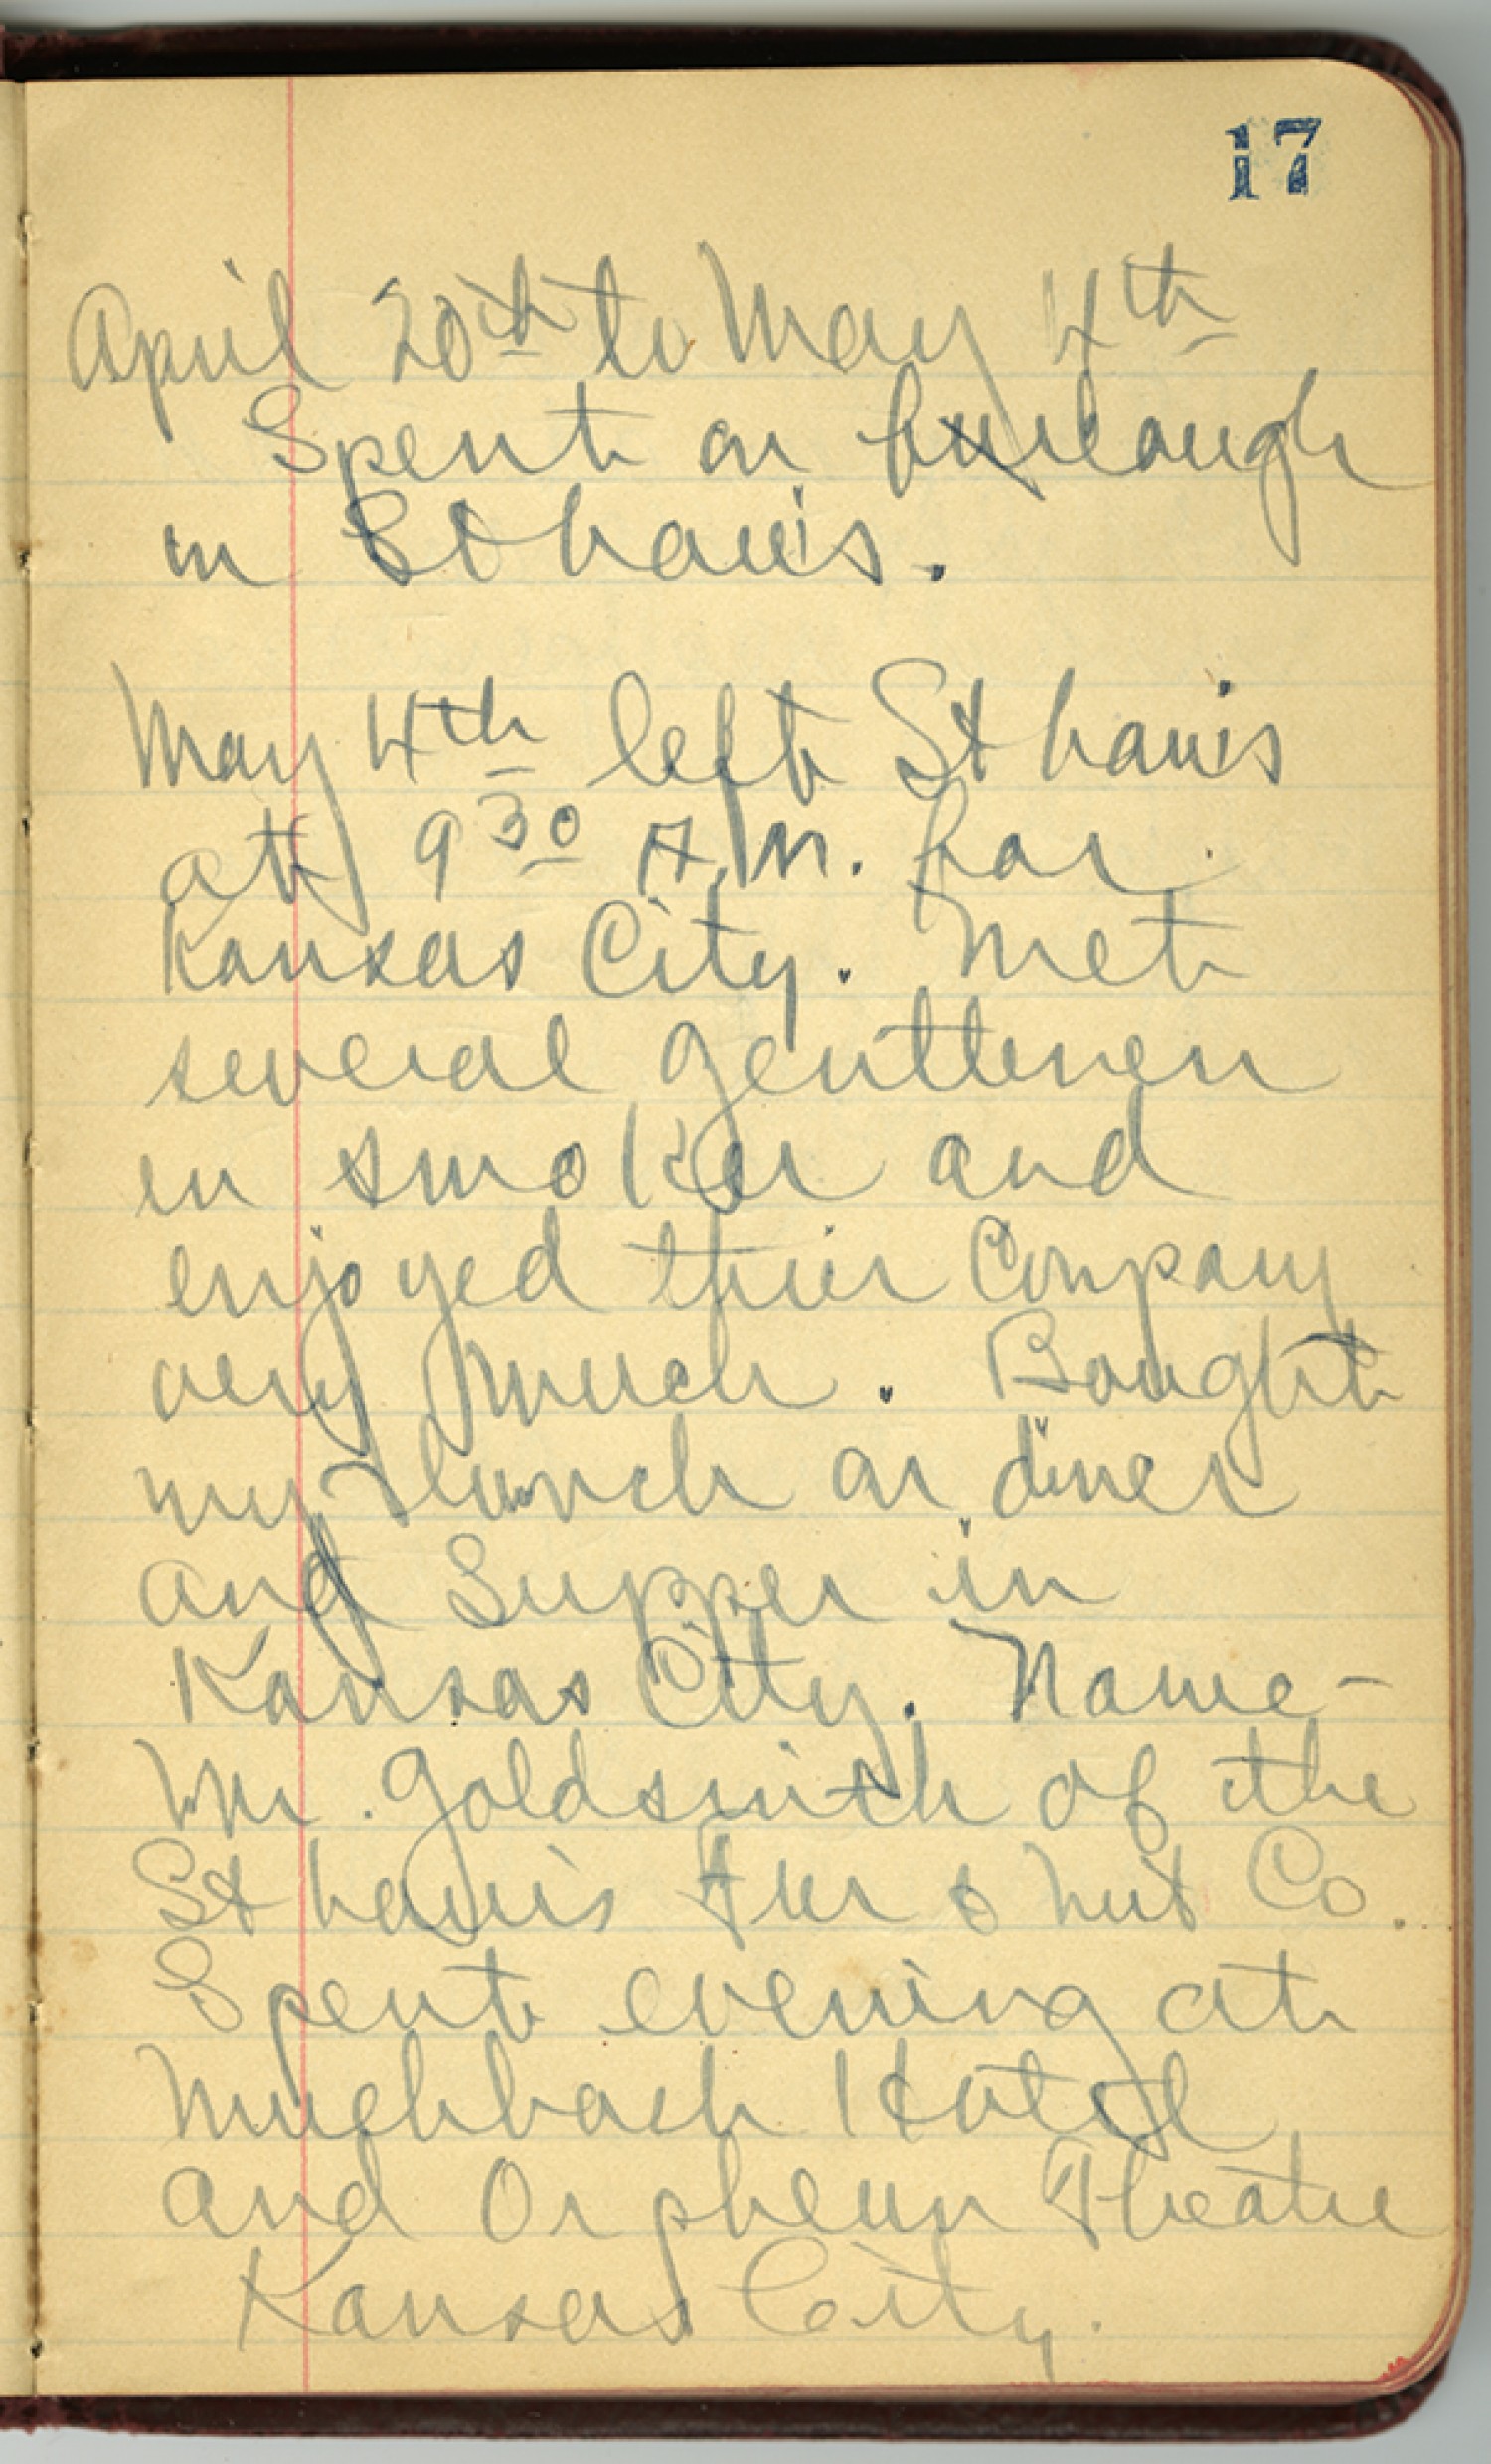 17
April 20th to May 4th
Spent on furlough
in St Louis.
May 4th left St Louis
at 9 30 A.M. for
Kansas City. Met
several gentlemen
in smoker and
enjoyed thier Company
very much. Bought
my lunch on diner
and Supper in
Kansas City. Name -
Mr. Goldsmith of the
St Louis Fur & Co.
Spent evening at
Muehbach Hotel
and Orpheum Theatre
Kansas City.